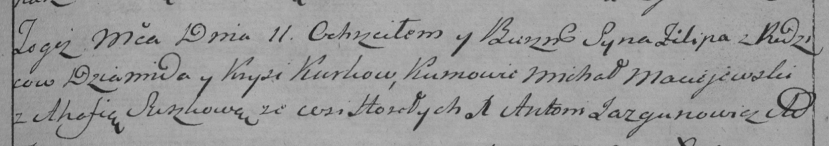 Togoż Mca Dnia 11. Ochrzciłem y Birzm Syna Filipa z Rodzi
cow Dziamida y Krysi Kurkow, Kumowie Michał Maciejewski
z Ahafią Suszkową ze wsi Horełych X Antoni Jazgunowicz AD